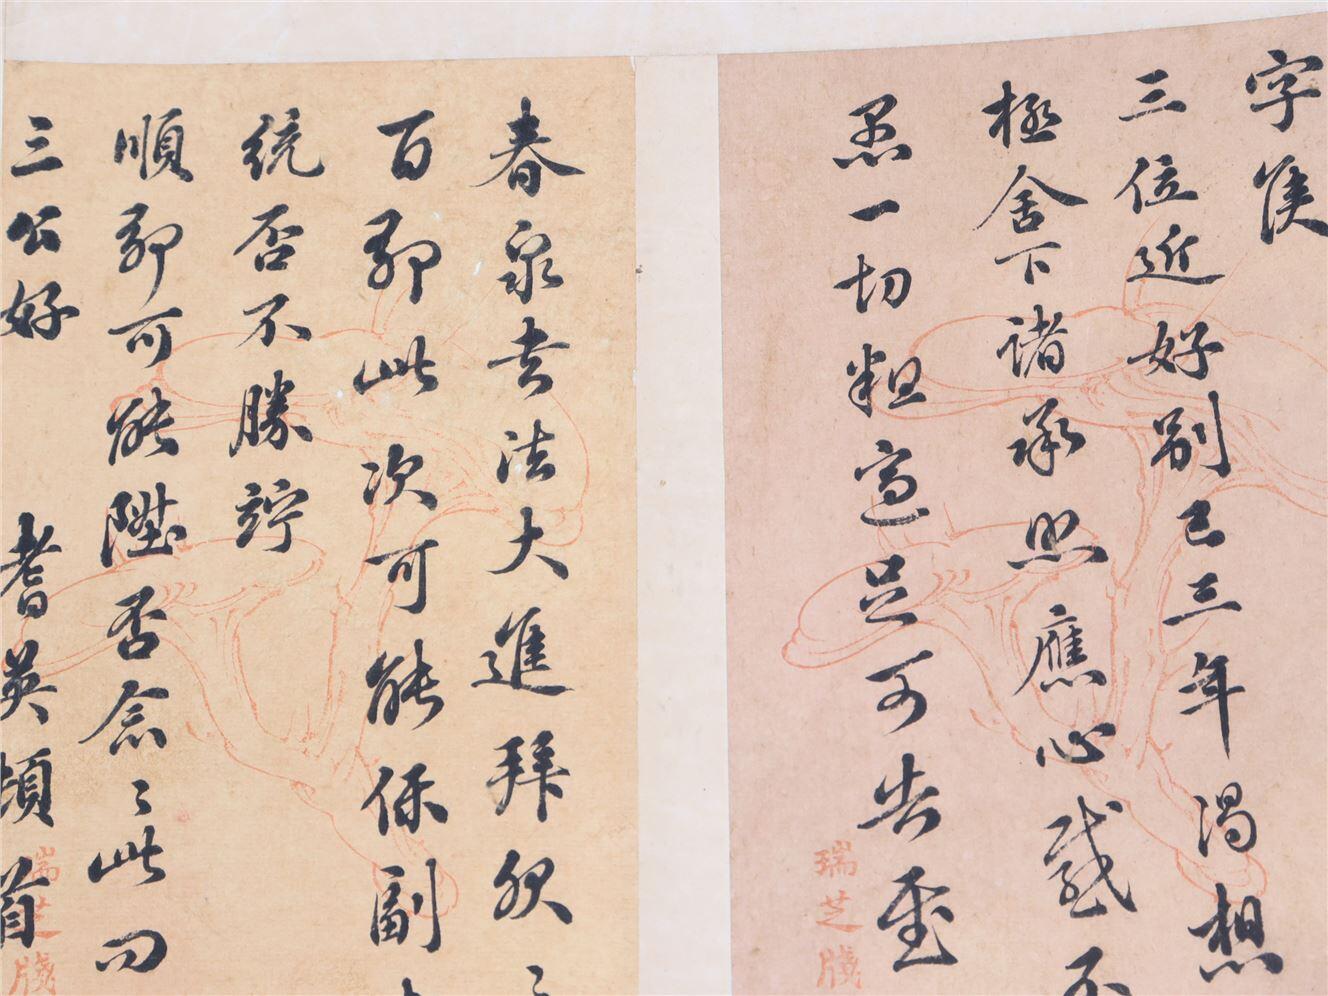 字候
三位近好别已三年渴想
極舍下諸承照應心感不
愚一切粗適足可告
瑞芝牋
春泉去法大進拜服〻
百卿此次可能保副
統否不勝
順卿可能陞否念〻此叩
三公好 耆英頓首
瑞芝牋